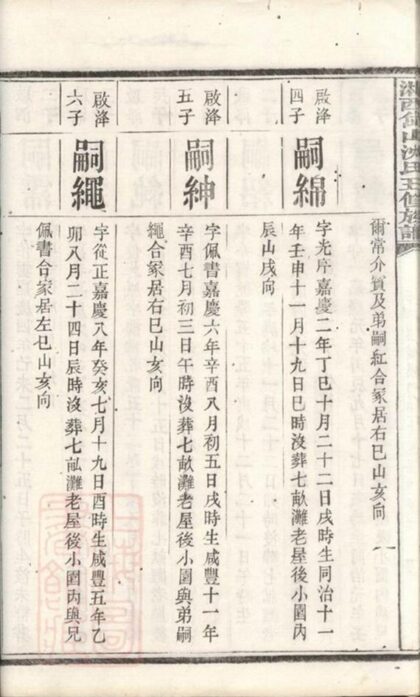 爾常介賓及弟嗣紅合冢居右巳山亥向
啟洚
四子
嗣綿
字光序嘉慶二年丁巳十月二十二日戌時生同治十一
年壬申十一月十九日巳時沒葬七畝灘老屋後小園內
辰山戌向
啟洚
五子
嗣紳
字佩書嘉慶六年辛酉八月初五日戌時生咸豐十一年
辛酉七月初三日午時沒葬七畝灘老屋後小園與弟嗣
繩合冢居右巳山亥向
啟洚
六子
嗣繩
字從正嘉慶八年癸亥七月十九日酉時生咸豐五年乙
卯八月二十四日辰時沒葬七畝灘老屋後小園內與兄
佩書合冢居左巳山亥向